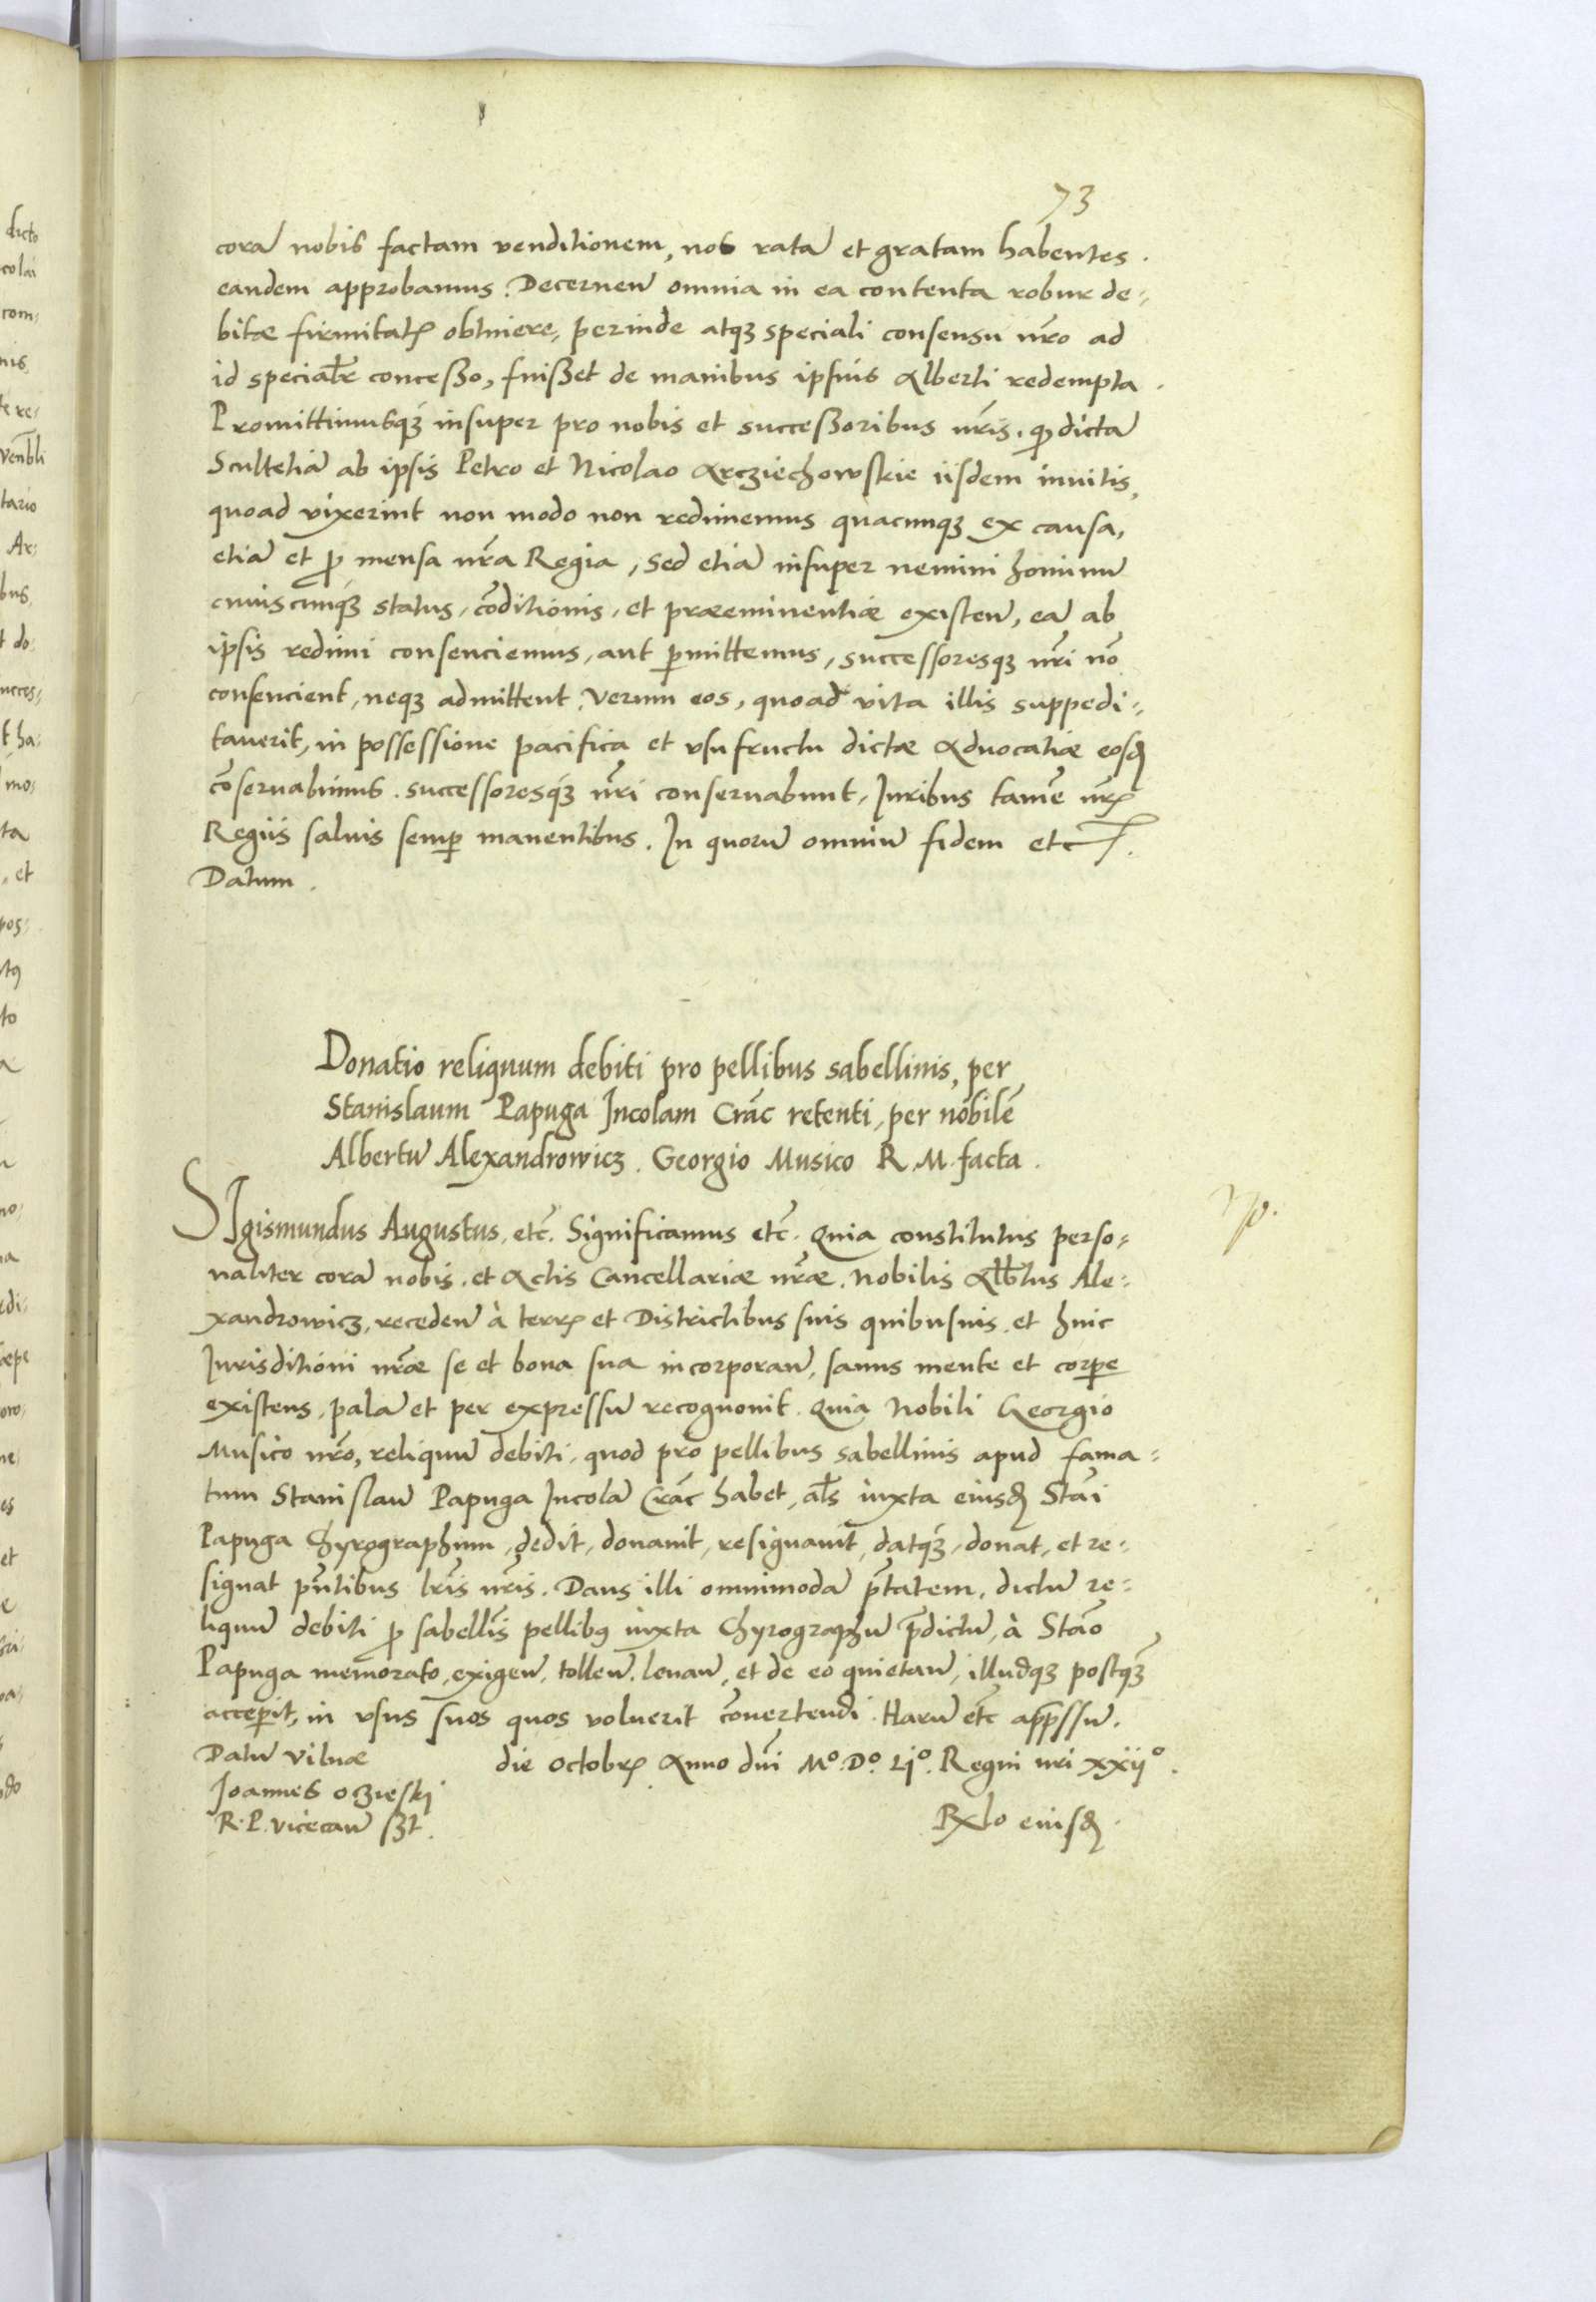 73
corā nobis factam venditionem, nos ratā et gratam habentes.
eandem approbamus. Decernen̄ omnia in ea contenta robur de⸗
bitæ firmitatꝭ obtinere, perinde atqꝫ speciali consensu nr̄o ad
id specialr̄ conceßo, fuißet de manibus ipsius Alberti redempta.
Promittimusqꝫ insuper pro nobis et succeßoribus nr̄is. qđ dictā
Scultetiā ab ipsis Petro et Nicolao Arcziechowskie iisdem inuitis,
quoad vixerint non modo non redimemus quacunqꝫ ex causa,
etiā et ꝓ mensa nr̄a Regia, sed etiā insuper nemini hominū
cuiuscunqꝫ status, cōditionis, et præeminentiæ existen̄, eā ab
ipsis redimi consenciemus, aut ꝑmittemus, successoresqꝫ nr̄i nō
consencient, neqꝫ admittent. Verum eos, quoad vita illis suppedi⸗
tauerit, in possessione pacifica et vsufructu dictæ Aduocatiæ eosđ
cōseruabimus. successoresqꝫ nr̄i conseruabunt, Juribus tamē nr̄ꝭ
Regiis saluis semꝑ manentibus. In quorū omniū fidem etc̄.
Datum.
Donatio reliquum debiti pro pellibus sabellinis, per
Stanislaum Papuga Incolam Crāc retenti, per nobilē
Albertū Alexandrowicz. Georgio Musico R. M. facta.
SIgismundus Augustus, etc̄. Significamus etc̄. Quia constitutus perso⸗
naliter corā nobis. et Actis Cancellariæ nr̄æ. Nobilis Alb̄tus Ale⸗
xandrowicz, receden̄ à terrꝭ et Districtibus suis quibusuis. et huic
Jurisditioni nr̄æ se et bona sua incorporan̄, sanus mente et corꝑe
existens, palā et per expressū recognouit. Quia Nobili Georgio
Musico nr̄o, reliquū debiti, quod pro pellibus sabellinis apud fama⸗
tum Stanislaū Papuga Incolā Crāc habet, al̄s iuxta eiusđ Stāi
Papuga Chyrographum, dedit, donauit, resignauit, datqꝫ, donat, et re⸗
signat pn̄tibus lr̄is nr̄is. Dans illi omnimodā ptātem, dictū re⸗
liquū debiti ꝓ sabellīs pellibꝰ iuxta Chyrographū p̄dictū, à Stāo
Papuga memorato, exigen̄, tollen̄. leuan̄, et de eo quietan̄, illudqꝫ postqꝫ̄
acceꝑit, in vsus suos quos voluerit cōuertendi. Harū etc̄ app̄ssū.
Datū Vilnæ die Octobrꝭ Anno dn̄i Mº. Dº. Liº. Regni nri xxiiº.
Joannes Oczieskj
R. P. Vicecan̄ sszt.
Rlo eiusđ.